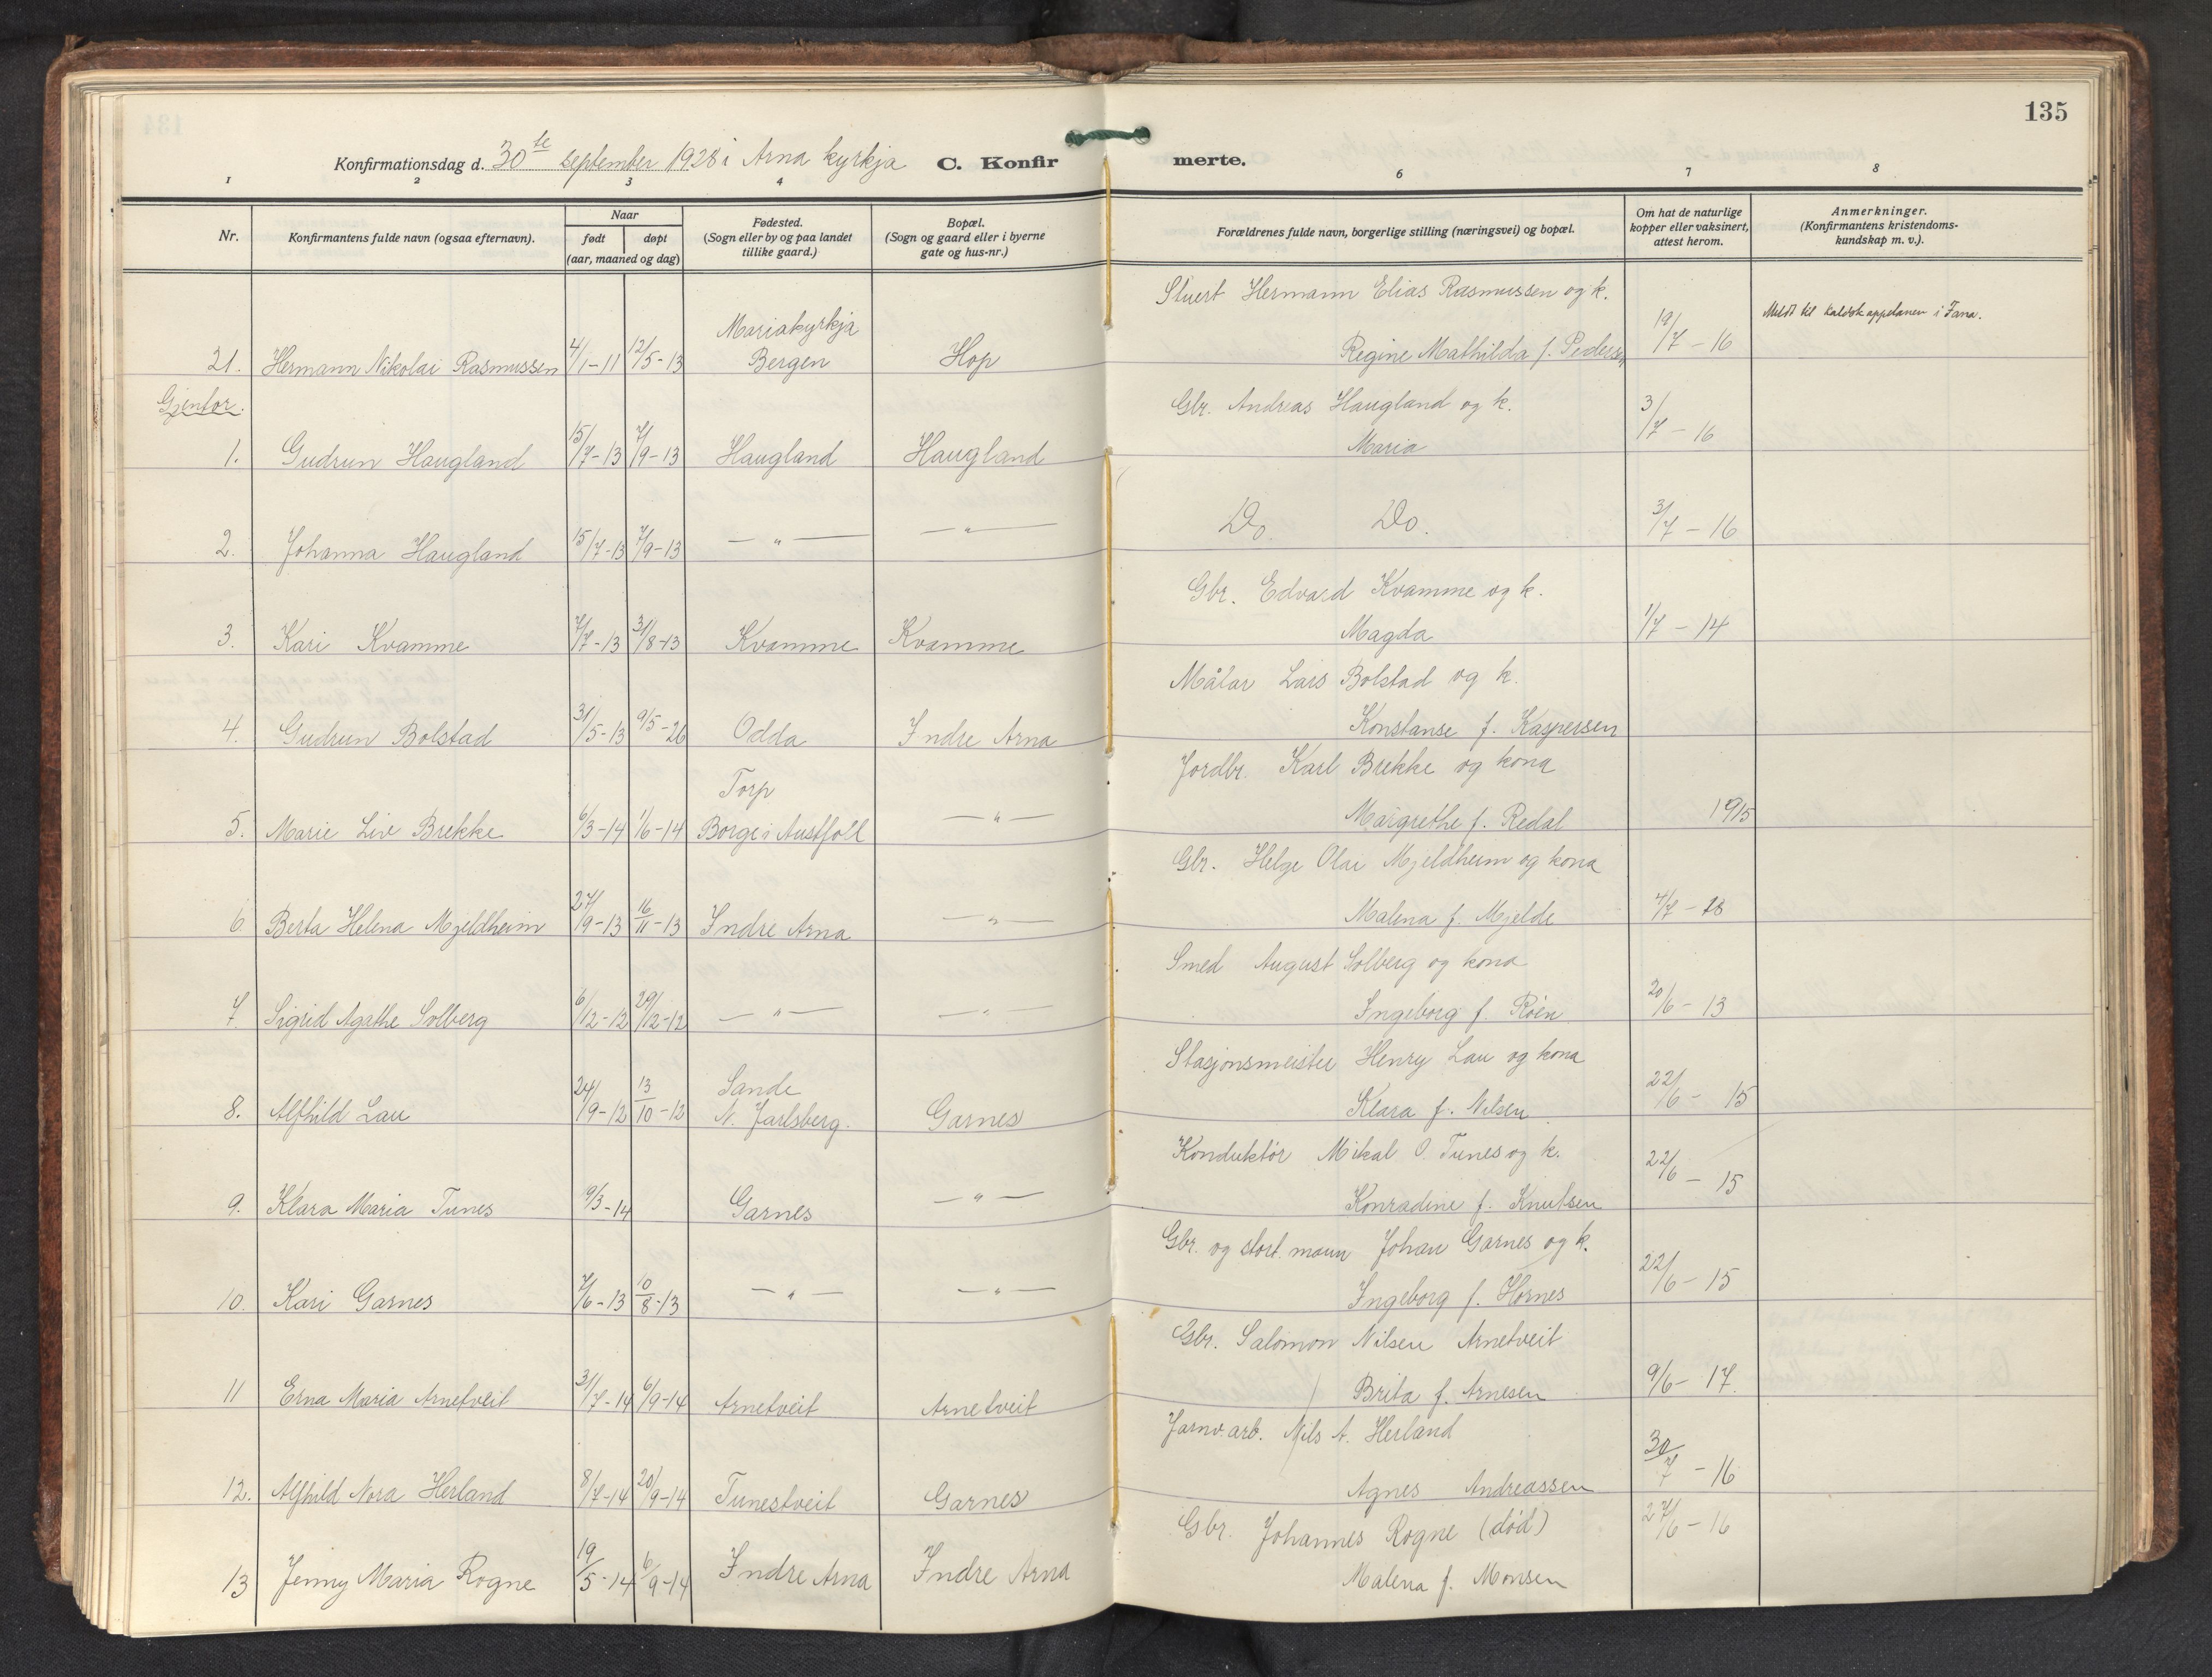 135
Konfirmationsdag d. 30te september 1928 i Arna kyrkja C. Konfirmerte.
1 2 3 4 6 7 8
Nr.
Konfirmantens fulde navn (ogsaa efternavn).
Naar
født døpt
(aar, maaned og dag)
Fødested.
(Sogn eller by og paa landet
tillike gaard.)
Bopæl.
(Sogn og gaard eller i byerne
gate og hus-nr.)
Forældrenes fulde navn, borgerlige stilling (næringsvei) og bopæl.
Om hat de naturlige
kopper eller vaksinert,
attest herom.
Anmerkninger.
(Konfirmantens kristendoms-
kundskap m. v.).
Stuert Hermann Elias Rasmussen og k.
Mariakyrkja
21. Hermann Nikolai Rasmussen 4/1-11 12/5-13 Bergen Hop Regine Mathilda f. Pedersen 19/7-16 Meldt til kaldskappelanen i Fana.
Gjentor.
Gbr. Andreas Haugland og k.
1. Gudrun Haugland 15/7-13 7/9-13 Haugland Haugland Maria 3/7-16
2. Johanna Haugland 15/7-13 7/9-13 — " — — " — Do. Do. 3/7-16
Gbr. Edvard Kvamme og k.
3. Kari Kvamme 7/7-13 31/8-13 Kvamme Kvamme Magda 1/7-14
Målar Lars Bolstad og k.
4. Gudrun Bolstad 31/5-13 9/5-26 Odda Indre Arna Konstanse f. Kaspersen
Jordbr. Karl Brekke og kona
Torp
5. Marie Liv Brekke 6/3-14 1/6-14 Borge i Austfoll — " — Margrethe f. Redal 1915
Gbr. Helge Olai Mjeldheim og kona
6. Berta Helena Mjeldheim 27/9-13 16/11-13 Indre Arna — " — Malena f. Mjelde 4/7-18
Smed August Solberg og kona
7. Sigrid Agathe Solberg 6/12-12 29/12-12 — " — — " — Ingeborg f. Röen 20/6-13
Stasjonsmeister Henry Lau og kona
Sande
8. Alfhild Lau 24/9-12 13/10-12 N. Jarlsberg. Garnes Klara f. Nilsen 22/6-15
Konduktør Mikal O. Tunes og k.
9. Klara Maria Tunes 9/3-14 Garnes — " — Konradine f. Knutsen 22/6-15
Gbr. og stort. mann Johan Garnes og k.
10. Kari Garnes 7/6-13 10/8-13 — " — — " — Ingeborg f. Hornes 22/6-15
Gbr. Salomon Nilsen Arnetveit
11 Erna Maria Arnetveit 31/7-14 6/9-14 Arnetveit Arnetveit Brita f. Arnesen 9/6-17.
Jarnv. arb. Nils A. Herland
12. Alfhild Nora Herland 8/7-14 20/9-14 Tunestveit Garnes Agnes Andreassen 30/7-16
Gbr. Johannes Rogne (død)
13 Jenny Maria Rogne 19/5-14 6/9-14 Indre Arna Indre Arna Malena f. Monsen 27/6-16